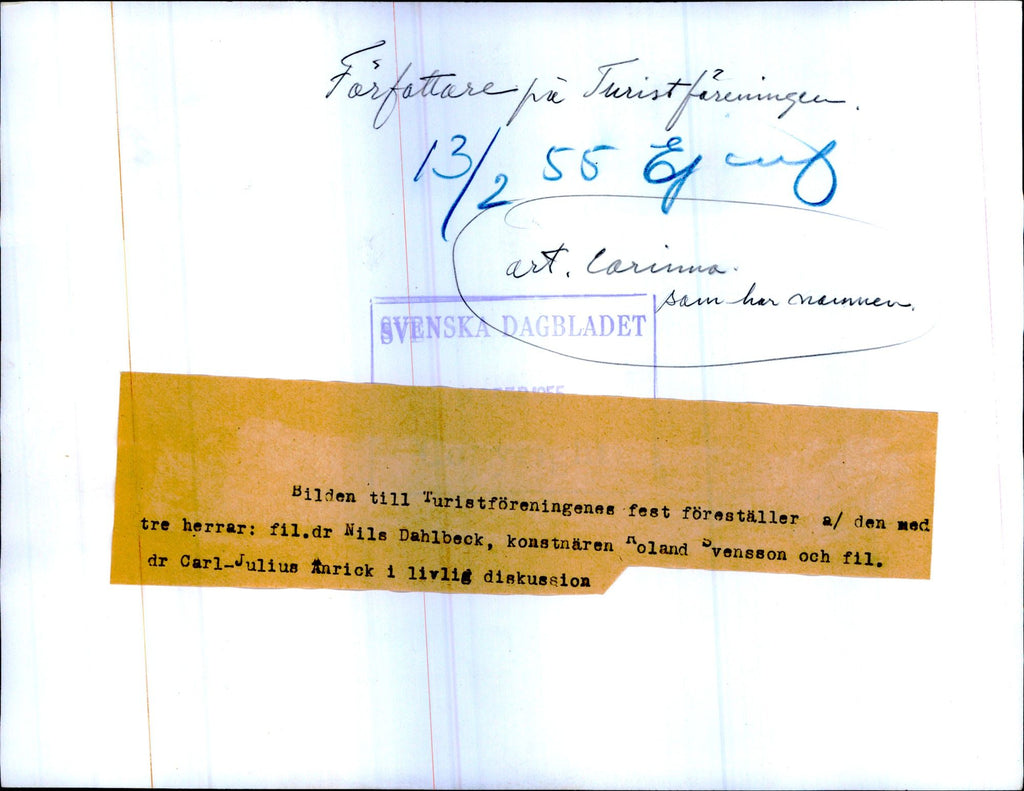 Författare på Turistföreningen.
13/2 55 Ej
art. Corinna.
som har namnen.
SVENSKA DAGBLADET
1955
Bilden till Turistföreningenes fest föreställer a/ den med
tre herrar: fil.dr Nils Dahlbeck, konstnären Roland Svensson och fil.
dr Carl-Julius Anrick i livlig diskussion